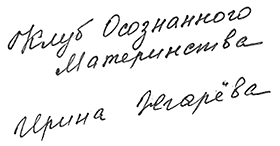 Клуб Осознанного
Материнства
Ирина Жгарёва